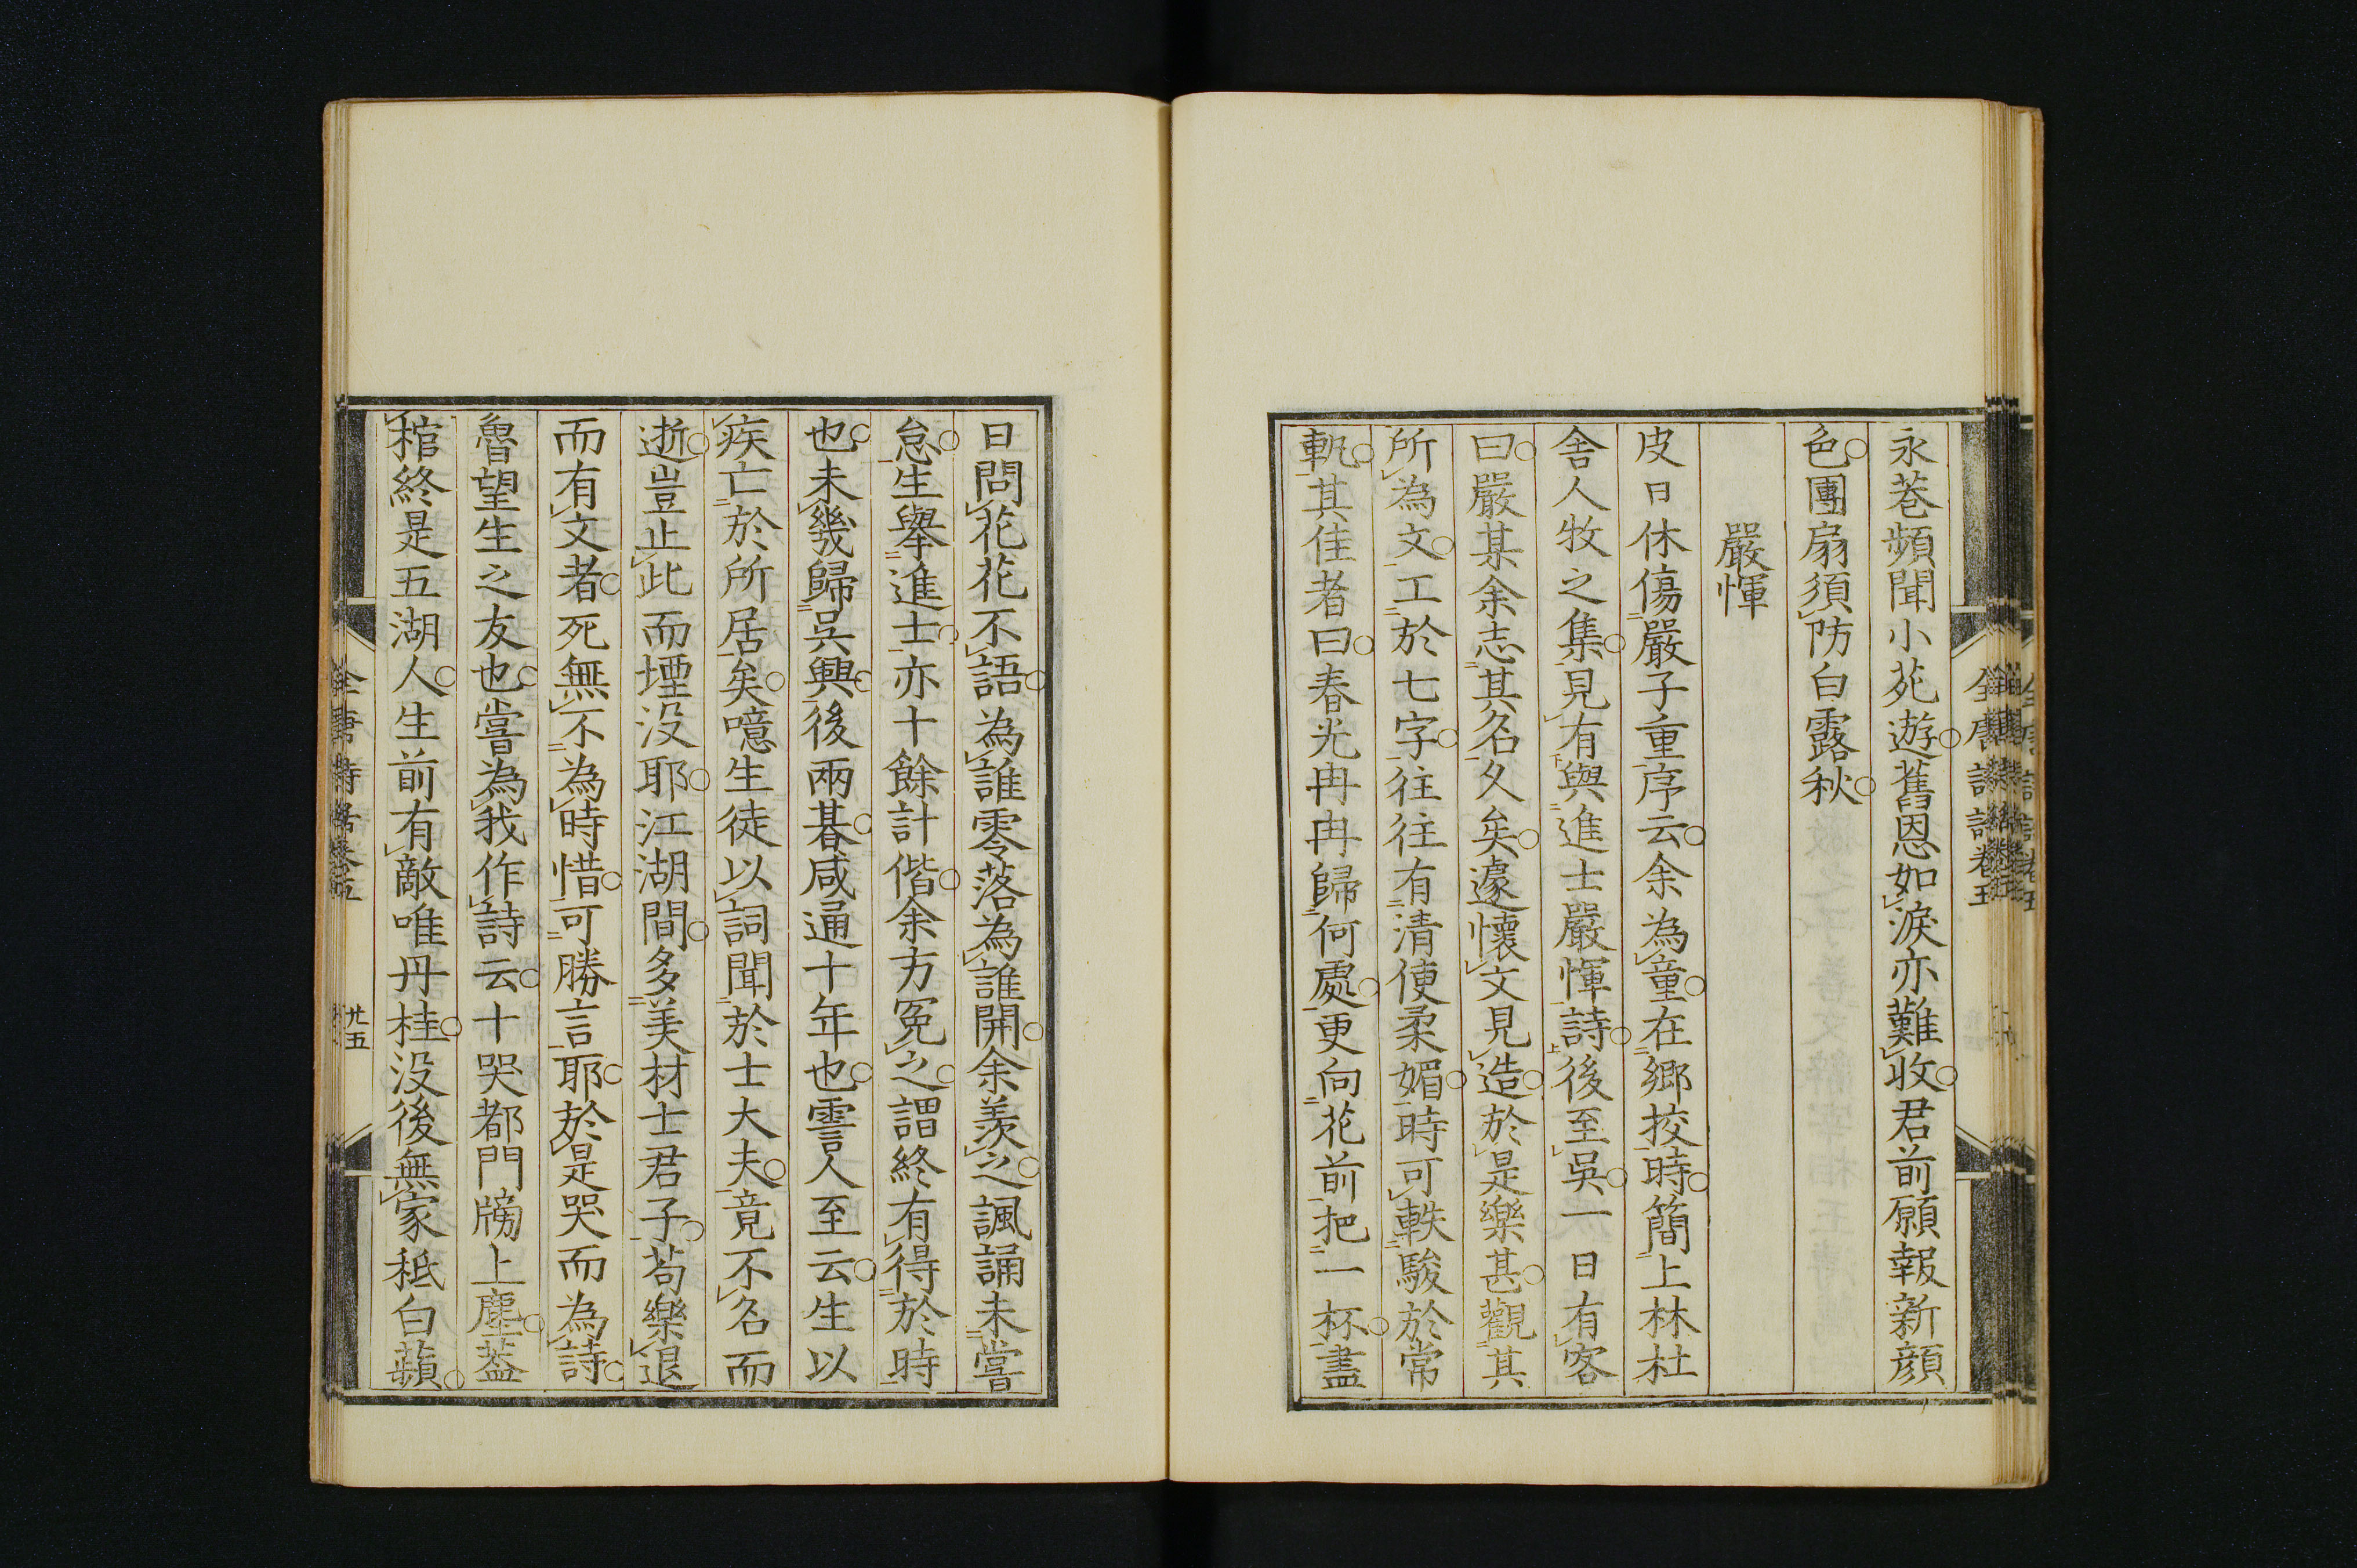 永巷頻聞小苑遊舊恩如淚亦難收君前願報新顔
色團扇須防白露秋
嚴惲
皮日休傷嚴子重序云余為童在鄉挍時簡上林杜
舎人牧之集見有與進士嚴惲詩後至吳一日有客
曰嚴某余志其名久矣遽懷文見造於是樂甚觀其
所為文工於七字往往有清便柔媚時可軼駿於常
軓其佳者曰春光冉冉歸何處更向花前把一杯盡
全唐詩話卷五
日問花花不語為誰零落為誰開余羡之諷誦未嘗
怠生舉進士亦十餘計偕余方冤之謂終有得於時
也未幾歸吳興後兩朞咸通十年也霅人至云生以
疾亡於所居矣噫生徒以詞聞於士大夫竟不名而
逝豈止此而堙沒耶江湖間多美材士君子苟樂退
而有文者死無不為時惜可勝言耶於是哭而為詩
魯望生之友也嘗為我作詩云十哭都門牓上塵葢
棺終是五湖人生前有敵唯丹桂没後無家秪白蘋
全唐詩話卷五
廿五